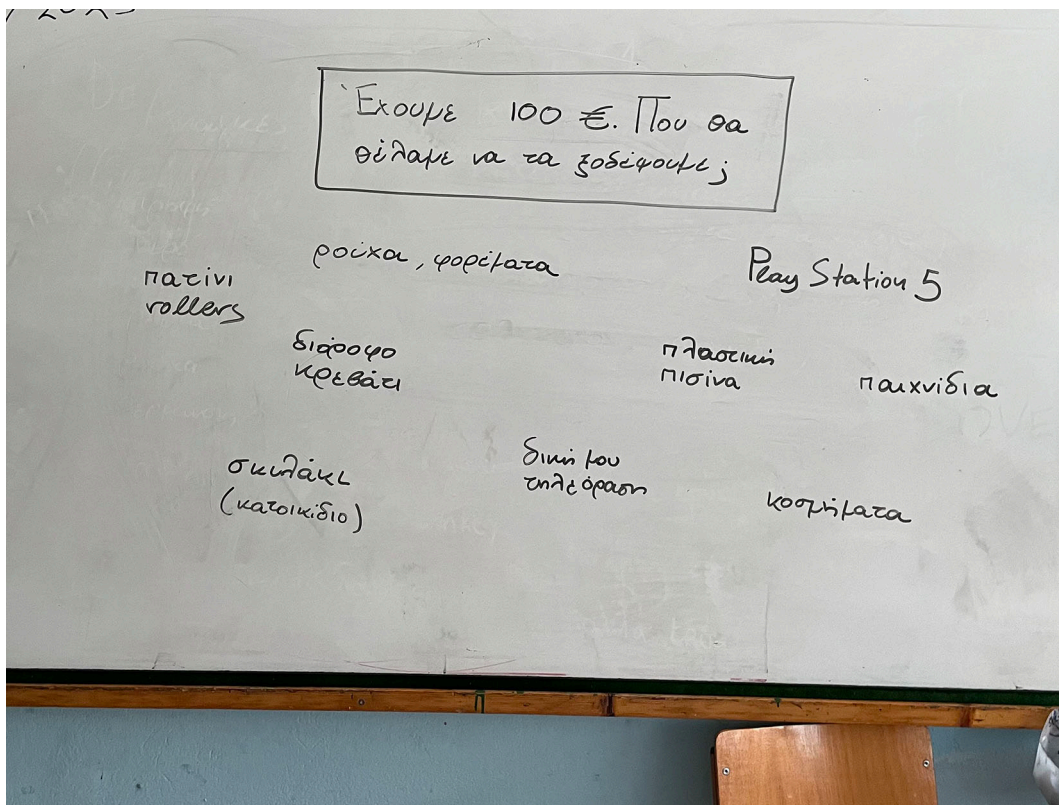 Έχουμε 100 €. Που θα
θέλαμε να τα ξοδέψουμε;
ρούχα, φορέματα
Play Station 5
πατίνι
rollers
διόροφο
κρεβάτι
πλαστική
πισίνα
παιχνίδια
σκυλάκι
(κατοικίδιο)
δική μου
τηλεόραση
κοσμήματα